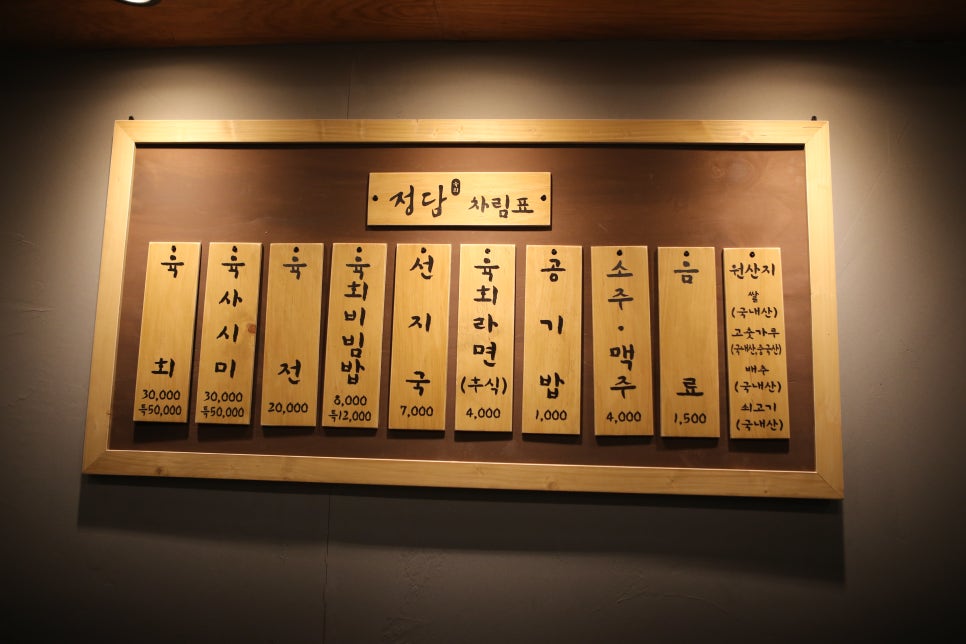 정담 차림표
육회
30,000
특50,000
육사시미
30,000
특50,000
육전
20,000
육회비빔밥
8,000
특12,000
선지국
7,000
육회라면
(후식)
4,000
공기밥
1,000
소주·맥주
4,000
음료
1,500
원산지
쌀
(국내산)
고춧가루
(국내산,중국산)
배추
(국내산)
쇠고기
(국내산)